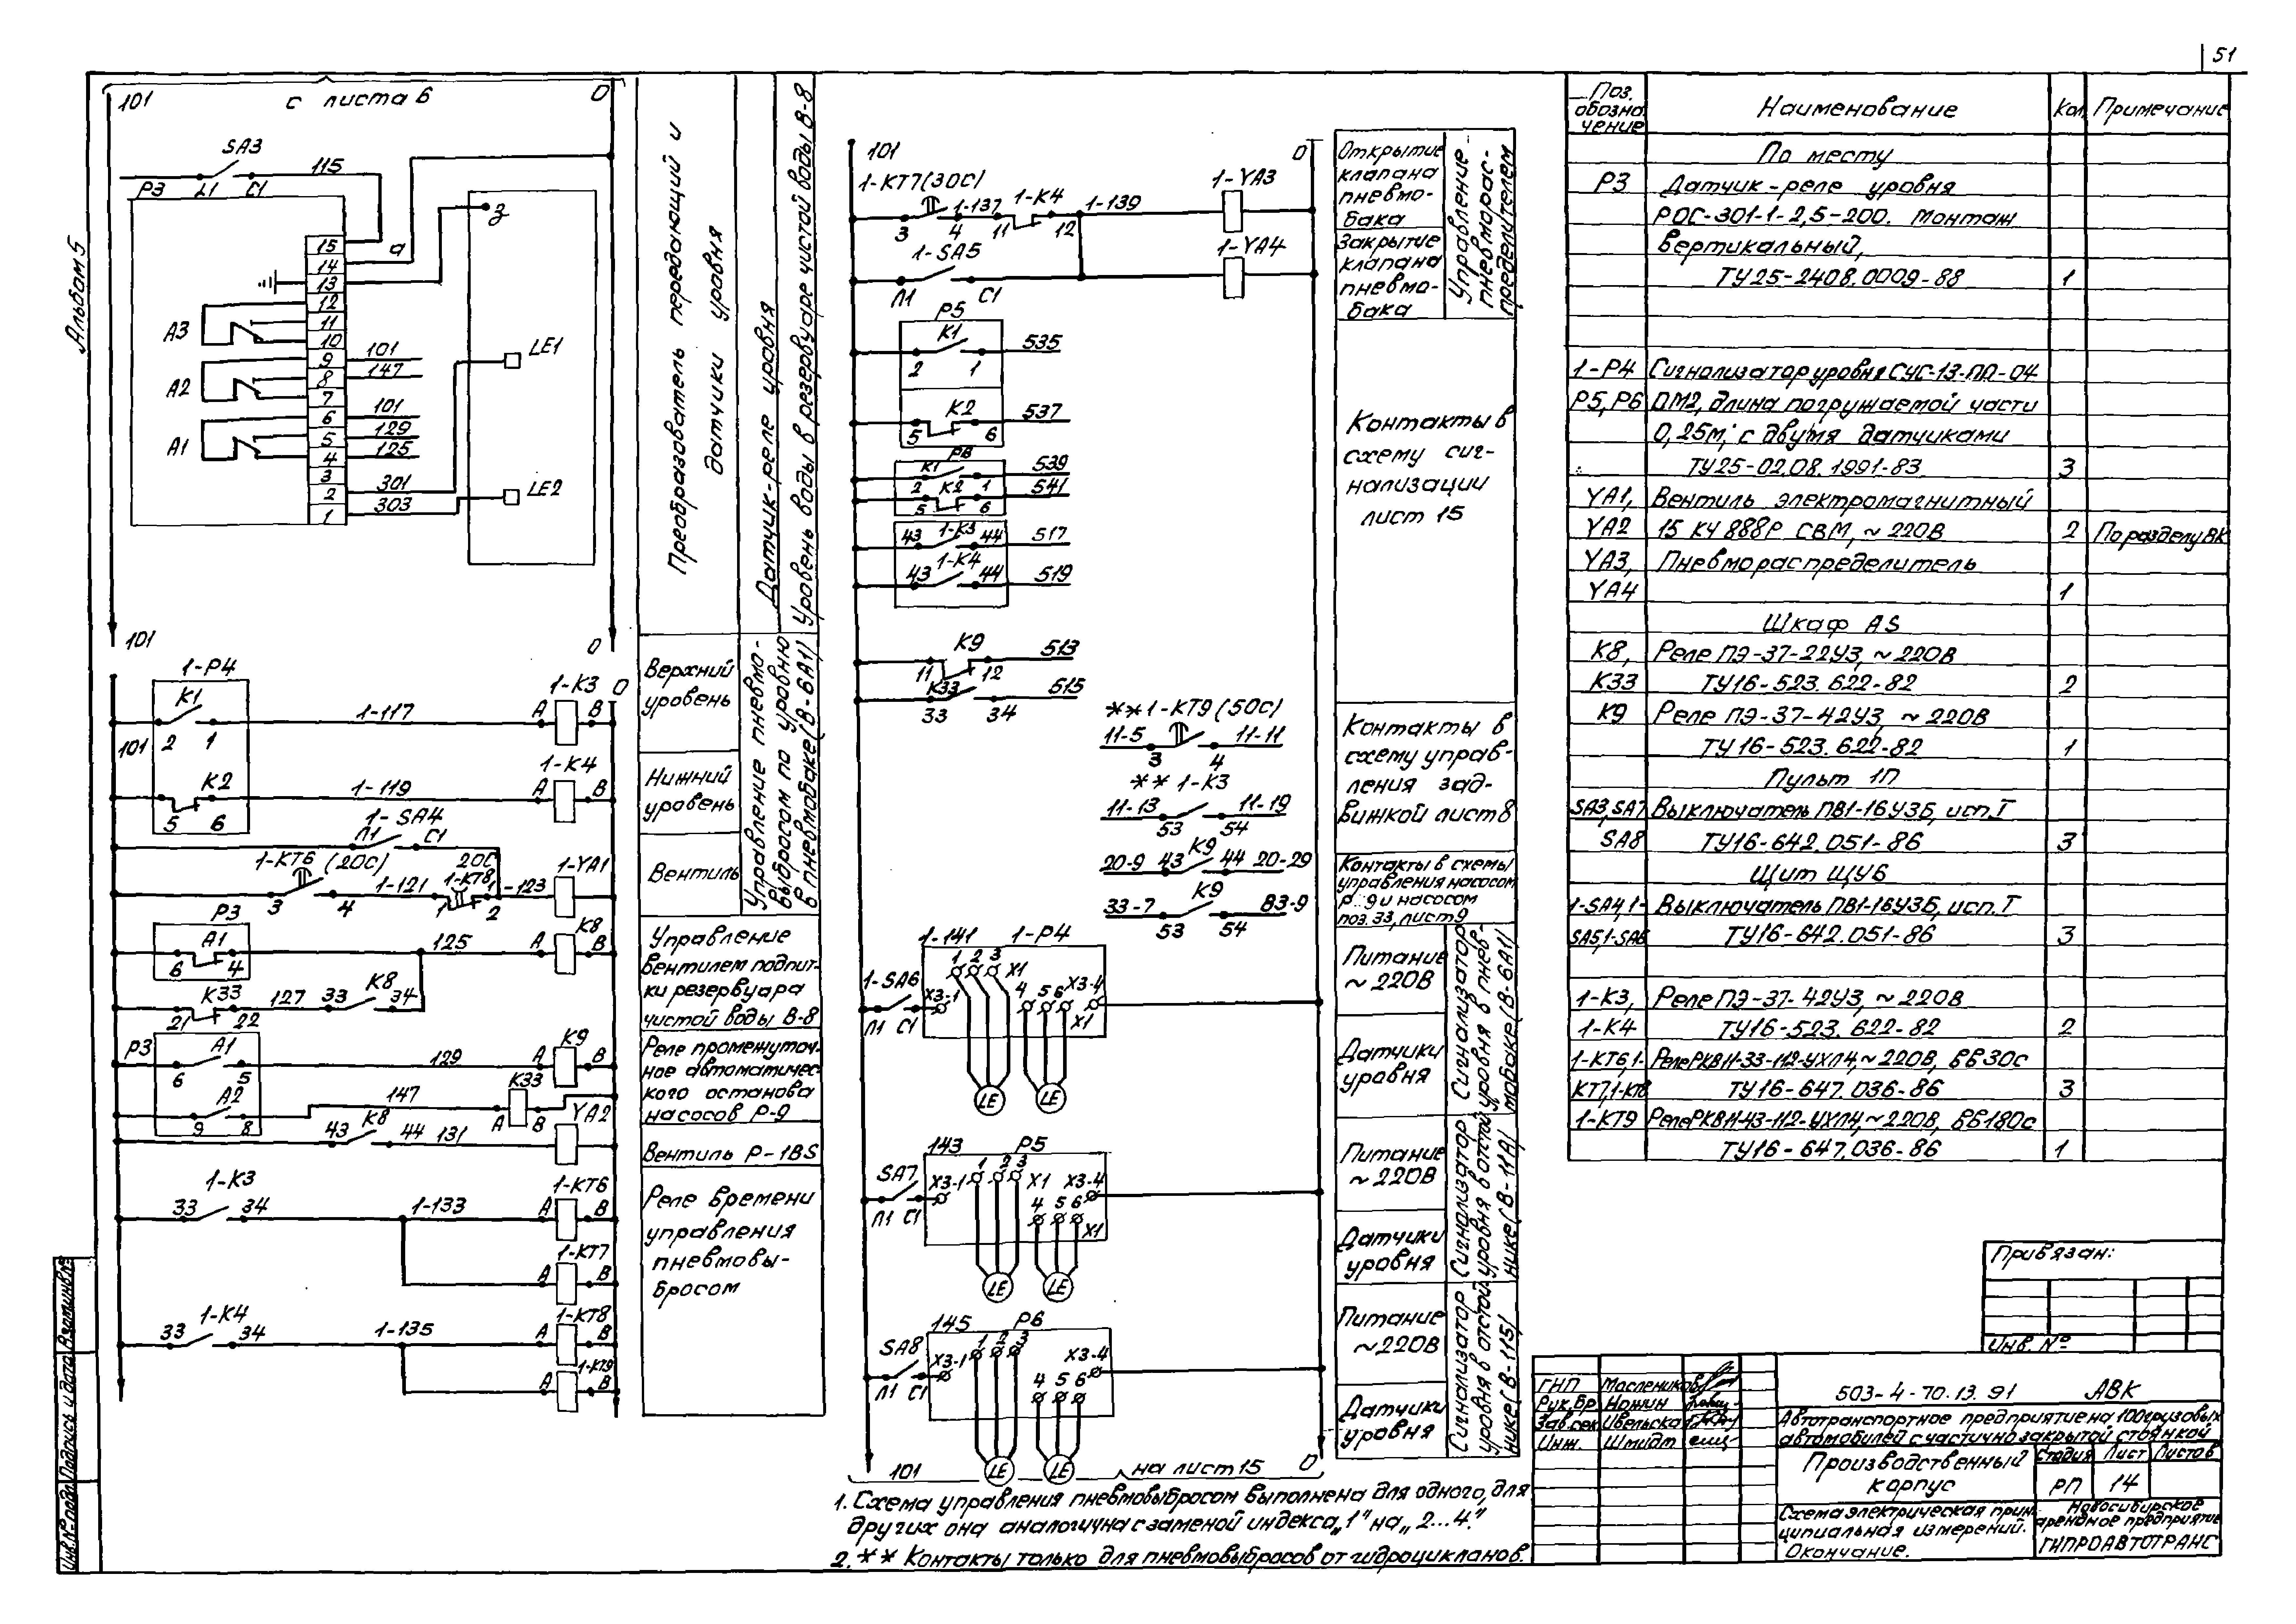 51
Альбом 5
101
с листа 6
0
SA3
115
Р3
L1
С1
а
З
15
14
13
12
11
10
9
8
7
6
5
4
3
2
1
А3
А2
А1
101
147
101
129
125
301
303
LE1
LE2
101
0
Преобразователь передающий и
датчики уровня
Датчик-реле уровня
Уровень воды в резервуаре чистой воды В-8
1-Р4
К1
2 1
101
1-117
1-К3
А В
0
Верхний
уровень
К2
5 6
1-119
1-К4
А В
Нижний
уровень
1-SA4
Л1 С1
1-КТ6 (20С)
3 4
1-121
20С
1-КТ8
1 2
1-123
1-YA1
Вентиль
Управление пневмо-
выбросам по уровню
в пневмобаке (В-6А1)
Р3
А1
6 4
125
К8
А В
К33
21 22
127
33 К8 34
Управление
вентилем подпит-
ки резервуара
чистой воды В-8
Р3
А1
6 5
129
К9
А В
А2
9 8
147
К33
А В
Реле промежуточ-
ное автоматичес-
кого останова
насосов Р-9
К8
43 44 131
YA2
Вентиль Р-1BS
1-К3
33 34
1-133
1-КТ6
А В
1-КТ7
А В
1-К4
33 34
1-135
1-КТ8
А В
1-КТ9
А В
Реле времени
управления
пневмовы-
бросом
101
0
1-КТ7(30С)
3 4
1-137
1-К4
11 12
1-139
1-YA3
1-SA5
Л1 С1
1-YA4
Открытие
клапана
пневмо-
бака
Закрытие
клапана
пневмо-
бака
Управление
пневморас-
пределителем
Р5
К1
2 1
535
К2
5 6
537
К1
2 1
539
К2
5 6
541
1-К3
43 44
517
1-К4
43 44
519
К9
11 12
513
К33
33 34
515
Контакты в
схему сиг-
нализации
лист 15
**1-КТ9 (50С)
11-5 3 4 11-11
** 1-К3
11-13 53 54 11-19
Контакты в
схему управ-
ления зад-
вижкой лист 8
К9
20-9 43 44 20-29
К9
33-7 53 54 83-9
Контакты в схемы
управления насосом
поз.33, лист 9
1-141
1-Р4
1-SA6
Л1 С1
Х3-1
1 2 3 Х1
4 5 6
Х3-4
Х1
LE LE
Питание
~ 220В
Датчики
уровня
Сигнализатор
уровня в пнев-
мобаке (В-6А1)
143
Р5
SA7
Л1 С1
Х3-1
1 2 3 Х1
4 5 6
Х3-4
Х1
LE LE
Питание
~ 220В
Датчики
уровня
Сигнализатор
уровня в отстой
нике (В-11А)
145
Р6
SA8
Л1 С1
Х3-1
1 2 3
4 5 6
Х3-4
LE LE
Питание
~220В
Датчики
уровня
Сигнализатор
уровня в отстой
нике (В-115)
101
на лист 15
0
1. Схема управления пневмовыбросом выполнена для одного, для
других она аналогична с заменой индекса „1" на „2...4."
2. ** Контакты только для пневмовыбросов от гидроцикланов.
Поз. обозна чение
Наименование
Кол.
Примечание
По месту
Р3 Датчик-реле уровня
РОС-301-1-2,5-200. Монтаж
вертикальный,
ТУ25-2408.0009-88 1
1-Р4 Сигнализатор уровня СУС-13-ПП-04
Р5, Р6 ОМ2, длина погружаемой части
0,25м, с двумя датчиками
ТУ25-02.08.1991-83 3
YA1, Вентиль электромагнитный
YA2 15 КЧ 888Р СВМ, ~ 220В 2 По разделу ВК
YA3, Пневмораспределитель
YA4 1
Шкаф AS
К8, Реле ПЭ-37-22У3, ~ 220В
К33 ТУ16-523.622-82 2
К9 Реле ПЭ-37-42У3, ~ 220В
ТУ16-523.622-82 1
Пульт 1П
SA3, SA7 Выключатель ПВ1-16У3Б, исп. Т
SA8 ТУ16-642.051-86 3
Щит ЩУ6
1-SA4, 1- Выключатель ПВ1-16У3Б, исп. Т
SA5, 1-SA6 ТУ16-642.051-86 3
1-К3, Реле ПЭ-37-42У3, ~ 220В
1-К4 ТУ16-523.622-82 2
1-КТ6, 1- Реле РКВ11-33-112-УХЛ4, ~ 220В, ВВ30с
КТ7, 1-КТ8 ТУ16-647.036-86 3
1-КТ9 Реле РКВ11-43-112-УХЛ4, ~ 220В, ВВ180с
ТУ16-647.036-86 1
Привязан:
Инв. №
ГНП Маслеников
Рук.бр. Нонин
Зав.сек
Инж. Шмидт
503-4-70.13.91 АВК
Автотранспортное предприятие на 100 грузовых
автомобилей с частично закрытой стоянкой
Производственный
корпус
Стадия Лист Листов
РП 14
Схема электрическая прин-
ципиальная измерений.
Окончание.
Новосибирское
арендное предприятие
ГИПРОАВТОТРАНС
Инв.№ подл. Подпись и дата Взам.инв.№